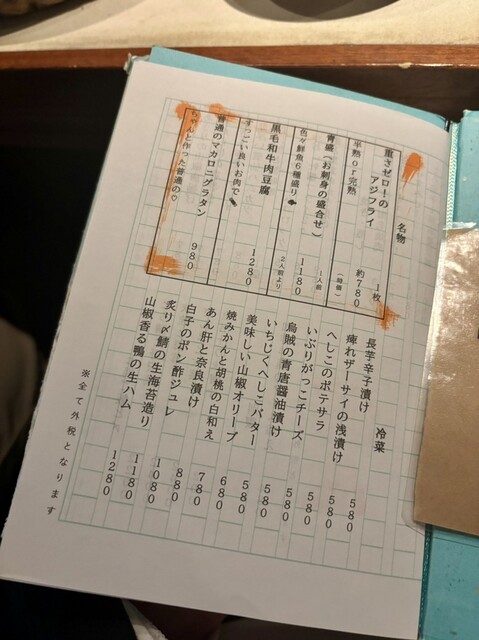 名物
重さゼロ!の
アジフライ 1枚 約780
半熟or完熟 (時価)
青盛(お刺身の盛合せ) 1人前 1180
色々鮮魚6種盛り 2人前より
黒毛和牛肉豆腐 1280
すっごい良いお肉で
普通のマカロニグラタン 980
ちゃんと作った普通の♡
冷菜
長芋辛子漬け 580
痺れザーサイの浅漬け 580
へしこのポテサラ 580
いぶりがっこチーズ 580
烏賊の青唐醤油漬け 580
いちじくへしこバター 580
美味しい山椒オリーブ 680
焼みかんと胡桃の白和え 780
あん肝と奈良漬け 880
白子のポン酢ジュレ 1080
炙り〆鯖の生海苔造り 1180
山椒香る鴨の生ハム 1280
※全て外税となります